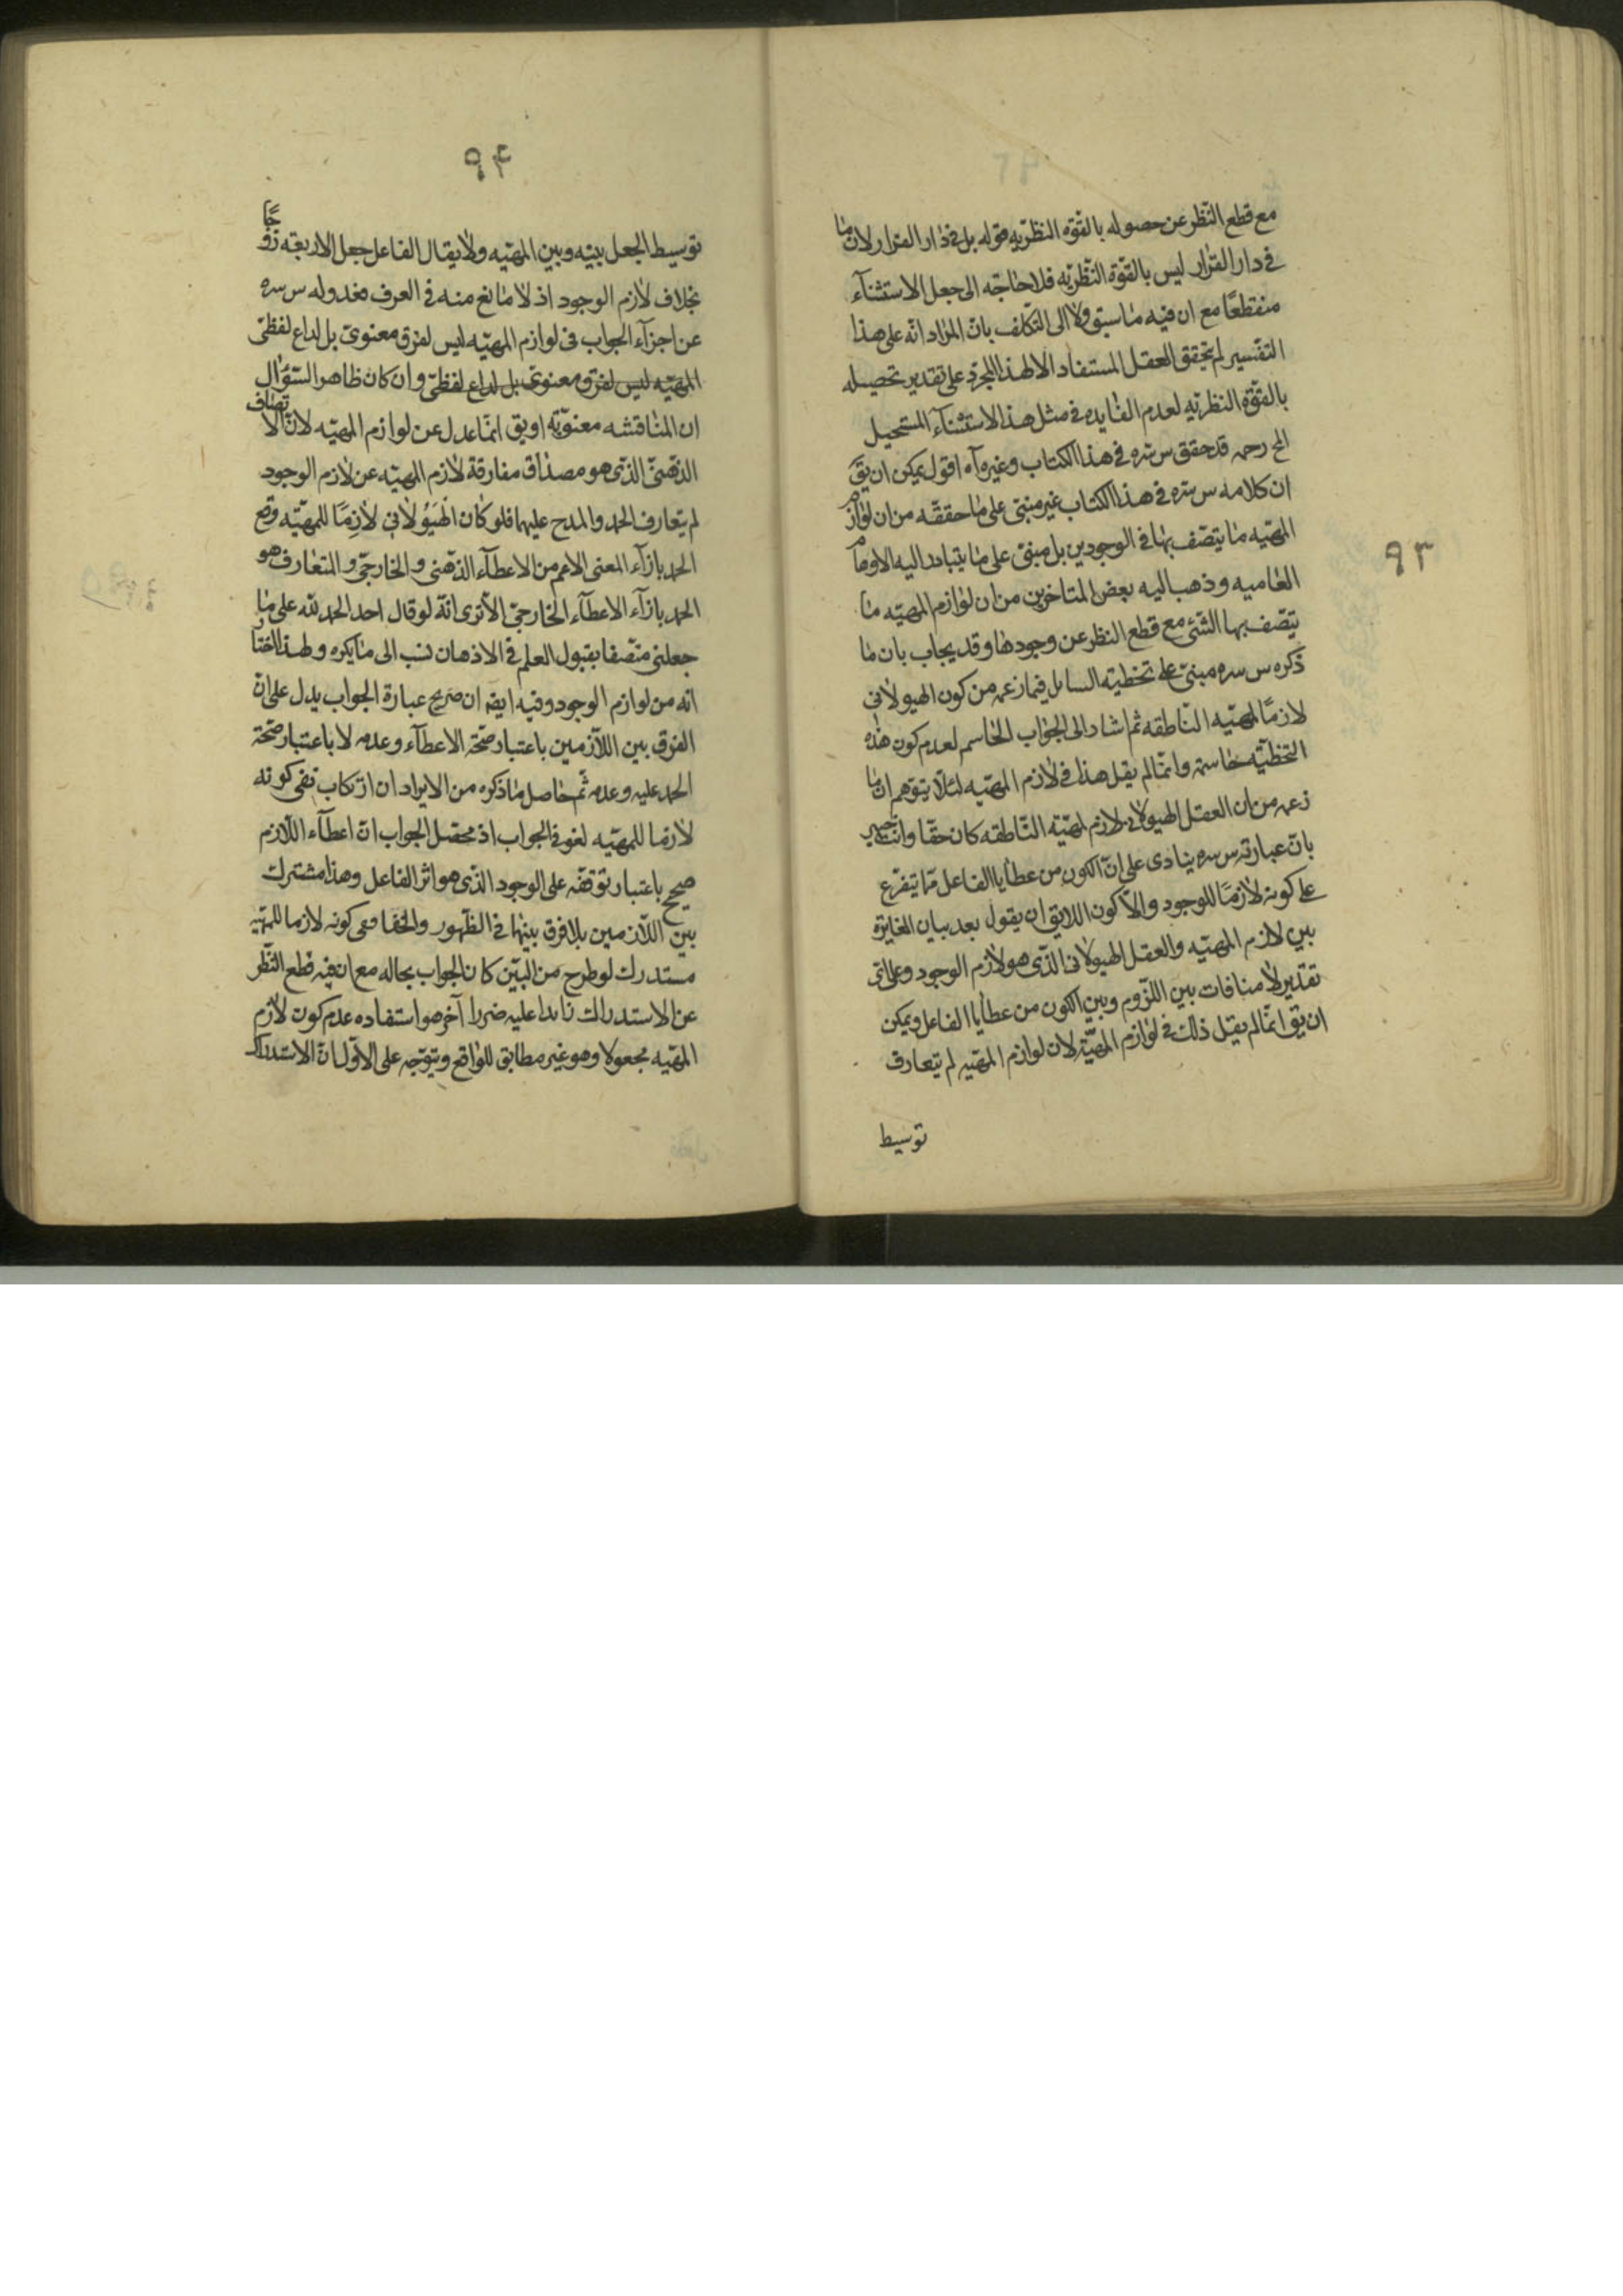 ٩٣
مع قطع النظر عن حصوله بالقوّة النظريه قوله بل فى دار القرار لان ما
فى دار القرار ليس بالقوّة النّظريّه فلا حاجة الى جعل الاستثنآء
منقطعًا مع ان فيه ما سبق ولا الى التكلف بانّ المراد انّه على هذا
التفسير لم يتحقق العقل المستفاد الا لهذا المجرّد على تقدير تحصيله
بالقوّة النظريّه لعدم الفايده فى مثل هذا الاستثنآء المستحيل
الخ رحمه قد حقق س سّره فى هذا الكتاب وغيره آه اقول يمكن ان يقَ
ان كلامه س سّره فى هذا الكتاب غير مبنىّ على ما حققه من ان لوازم
المهيّه ما يتصّف بها فى الوجودين بل مبنىّ على ما يتبادر اليه الاوهام
العاميه وذهب اليه بعض المتاخرين من ان لوازم المهيّه ما
يتّصف بها الشّئ مع قطع النظر عن وجودها وقد يجاب بان ما
ذكره س سره مبنىّ على تخطئه السايل فيما زعمه من كون الهيولانى
لازمًا لمهيّه النّاطقه ثم اشار الى الجواب الحاسم لعدم كون هذه
التخطئه حاسمة وانّما لم يقل هذا فى لازم المهيّه لئلّا يتوّهم ان ما
زعمه من ان العقل الهيولانى لازم لمهيّه النّاطقه كان حقّا وانت خبير
بانّ عبارته س سره ينادى على انّ الكون من عطايا الفاعل ممّا يتفرّع
على كونه لازمًا للوجود والّا كون اللايق ان يقول بعد بيان المغايرة
بين لازم المهيّه والعقل الهيولانى الّذى هو لازم الوجود وعلى اىّ
تقدير لا منافات بين اللّزوم وبين الكون من عطايا الفاعل ويمكن
ان يقَ انّما لم يقل ذلك فى لوازم المهيّه لان لوازم المهيه لم يتعارف
توسيط
٩٤
توسيط الجعل بينه وبين المهيّه ولا يقال الفاعل جعل الاربعة زوجًا
بخلاف لازم الوجود اذ لا مانع منه فى العرف فعدوله س سره
عن اجزآء الجواب فى لوازم المهيّه ليس لفرق معنوىّ بل لداع لفظىّ
المهيّه ليس لفرق معنوىّ بل لداع لفظىّ وان كان ظاهر السّؤال
ان المناقشه معنويّه او يقَ انمّا عدل عن لوازم المهيّه لانّ الاتّصاف
الذهنىّ الذّى هو مصداق مفارقة لازم المهيّه عن لازم الوجود
لم يتعارف الحمد والمدح عليهما فلو كان الهَيُولانى لازِمًا للمهيّه وقع
الحمد بازآء المعنى الاعم من الاعطآء الذّهنى والخارجىّ والمتعارف هو
الحمد بازآء الاعطآء الخارجىّ الا ترى انّه لو قال احد الحمد لله على ما
جعلنى متصّفا بقبول العلم فى الاذهان نسب الى ما يكره ولهذا اختار
انه من لوازم الوجود وفيه ايضا ان صريح عبارة الجواب يدل على انّ
الفرق بين اللّازمين باعتبار صحّة الاعطآء وعدمه لا باعتبار صحّة
الحمد عليه وعدمه ثّم حاصل ما ذكره من الايراد ان ارتكاب نفى كونه
لازما للمهيّه لغو فى الجواب اذ محصّل الجواب انّ اعطآء اللّازم
صحيح باعتبار توقفه على الوجود الذّى هو اثر الفاعل وهذا مشترك
بين اللّازمين بلا فرق بينهما فى الظّهور والخفا فنفى كونه لازما للمهيّه
مستدرك لو طرح من البين كان الجواب بحاله مع ان فيه قطع النّظر
عن الاستدراك زايدا عليه ضررا آخر هو استفاده عدم كون لازم
المهيّه مجعولا وهو غير مطابق للواقع ويتوّجه على الاوّل انّ الاستدراك